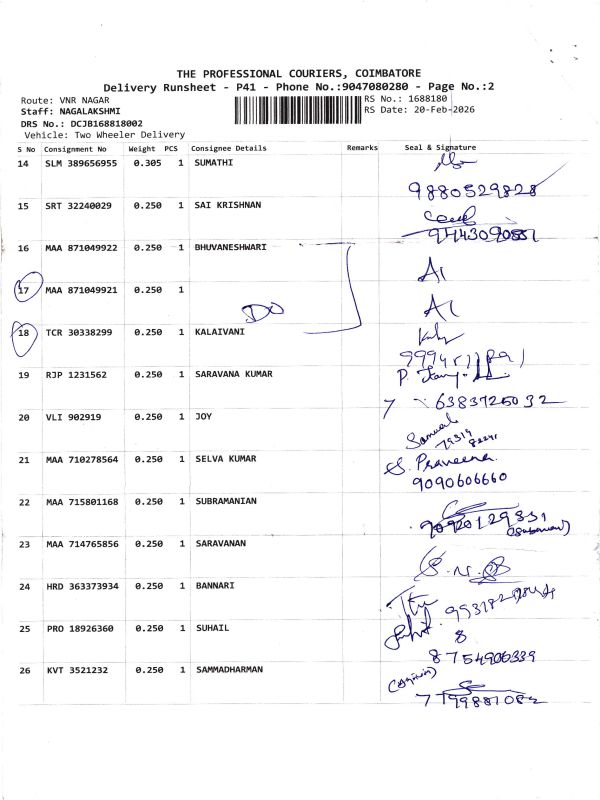 THE PROFESSIONAL COURIERS, COIMBATORE
Delivery Runsheet - P41 - Phone No.:9047080280 - Page No.:2
Route: VNR NAGAR
RS No.: 1688180
Staff: NAGALAKSHMI
RS Date: 20-Feb-2026
DRS No.: DCJB168818002
Vehicle: Two Wheeler Delivery
S No Consignment No Weight PCS Consignee Details Remarks Seal & Signature
14 SLM 389656955 0.305 1 SUMATHI
9880529828
15 SRT 32240029 0.250 1 SAI KRISHNAN
16 MAA 871049922 0.250 1 BHUVANESHWARI
17 MAA 871049921 0.250 1
DO
18 TCR 30338299 0.250 1 KALAIVANI
19 RJP 1231562 0.250 1 SARAVANA KUMAR
6383725032
20 VLI 902919 0.250 1 JOY
21 MAA 710278564 0.250 1 SELVA KUMAR
S. Praveena
9090606660
22 MAA 715801168 0.250 1 SUBRAMANIAN
23 MAA 714765856 0.250 1 SARAVANAN
24 HRD 363373934 0.250 1 BANNARI
25 PRO 18926360 0.250 1 SUHAIL
8754906339
26 KVT 3521232 0.250 1 SAMMADHARMAN